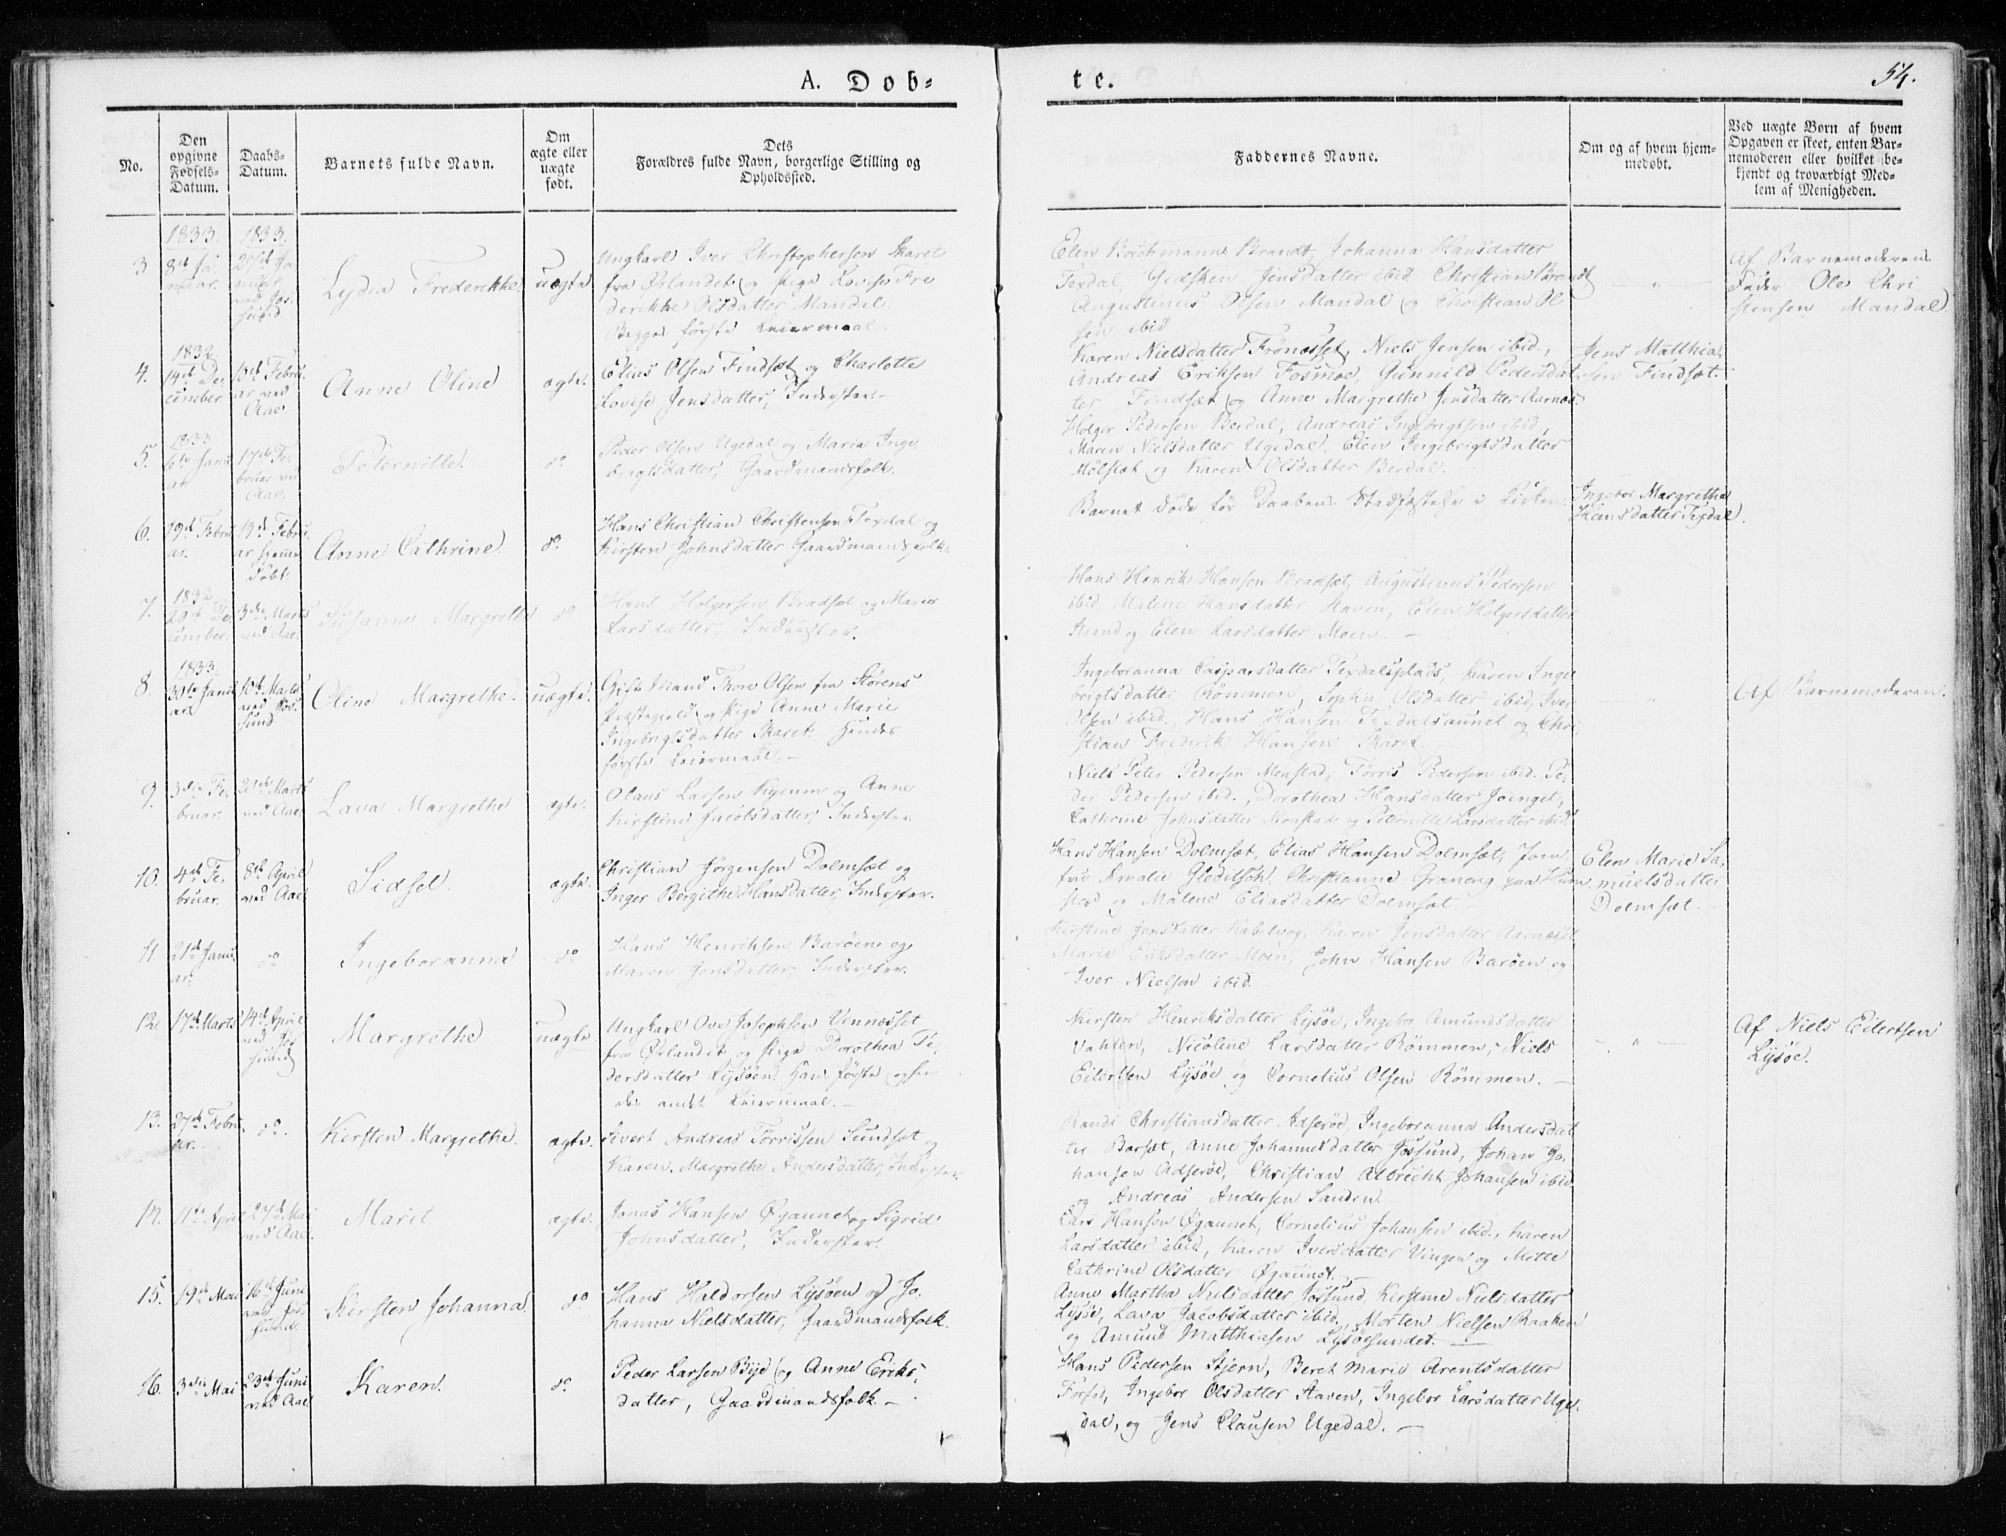 A. Døb-
te.
54.
No.
Den
opgivne
Fødsels-
Datum.
Daabs-
Datum.
Barnets fulde Navn.
Om
ægte eller
uægte
født.
Dets
Forældres fulde Navn, borgerlige Stilling og
Opholdssted.
Faddernes Navne.
Om og af hvem hjem-
medøbt.
Ved uægte Børn af hvem
Opgaven er skeet, enten Bar-
nemoderen eller hvilket be-
kjendt og troværdigt Med-
lem af Menigheden.
3
1833.
8de Ja
nuar.
1833.
Lydia Frederikke.
uægte
Ungkarl Iver Christophersen Skaret
fra Ørlandet og Pige Lovise Fre
derikke Olsdatter Mandal.
Begges første Leiermaal.
Elen Borchmanns Brandt, Johanna Hansdatter
Texdal, Gidsken Jensdatter ibid. Christian Brandt
Augustinus Olsen Mandal og Christian Ol
sen ibid.
Af Barnemoderens
Fader Ole Chri
stensen Mandal
4.
1832
14de De
cember
10de Febru
ar ved
Aae
Anne Oline
ægte.
Elias Olsen Findsæt og Charlotte
Lovise Jensdatter, Inderster.
Karen Nielsdatter Frönesset, Niels Jensen ibid,
Andreas Eriksen Fosmoe, Gunnild Pedersdat
ter Findsæt og Anne Margrethe Jensdatter Aarnes.
Jens Matthia
sen Findsæt.
5.
1833
6te Janu
ar
17de Fe
bruar ved
Aae.
Peternille.
do
Peder Olsen Ugedal og Maria Inge
brigtsdatter, Gaardmandsfolk.
Holger Pedersen Berdal, Andreas Ingebrigtsen ibid,
Maren Nielsdatter Ugedal, Elen Ingebrigtsdatter
Mölsæt og Karen Olsdatter Berdal.
6.
19de Febru
ar.
19de Febru
ar hjemme
døbt.
Anne Cathrine.
do
Hans Christian Christensen Texdal og
Kirsten Johnsdatter Gaardmandsfolk.
Barnet døde før Daabens Stadfæstelse i Kirken.
Ingebor Margrethe
Hansdatter Texdal.
7.
1832
De
cember.
3die Marts
ved Aae.
Susanne Margrethe
do
Hans Holgersen Bradsæt og Maria
Larsdatter, Inderster.
Hans Henrik Hansen Bradsæt, Augustinus Pedersen
ibid, Malene Hansdatter Staven, Elen Holgersdatter
Strand og Elen Larsdatter Moen.
8.
1833.
30te Janu
ar
10de Marts
ved Jøs
sund
Oline Margrethe.
uægte.
Gift Mand Thore Olsen fra Størens
Præstegield og Pige Anne Marie
Ingebrigtsdatter Skaret. Hendes
første Leiermaal.
Ingeboranna Caspersdatter Texdalsplads, Karen Inge
brigtsdatter Rømmen, Sophie Olsdatter ibid, Iver
Olsen ibid, Hans Hansen Texdalsaunet og Chri
stian Frederik Hansen Skaret
Af Barnemoderen.
9.
3die Fe
bruar.
Marts
ved Aae
Lava Margrethe
ægte.
Olaus Larsen Kyrum og Anne
Kirstine Jacobsdatter, Inderster.
Niels Peter Pedersen Monstad, Tørris Pedersen ibid. Pe
der Pedersen ibid., Dorothea Hansdatter Joenget,
Cathrine Johnsdatter Monstad og Peternille Larsdatter ibid.
10.
4de Fe
bruar.
8de April
ved Aae
Sidsel.
ægte.
Christian Jørgensen Dolmsæt og
Inger Bergithe Hansdatter, Inderster.
Hans Hansen Dolmsæt, Elias Hansen Dolmsæt, Jom
fru Amalie Gleditsch, Christianne
og Malene Eliasdatter Dolmsæt.
Elen Marie Sa
muelsdatter
Dolmsæt.
11
21de Janu
ar.
do
Ingeboranna
do
Hans Henriksen Barøen og
Maren Jensdatter, Inderster.
Kirstine Jensdatter Kabelvog, Karen Jensdatter Aarnesset
Marie Eriksdatter Moen, John Hansen Barøen og
Iver Nielsen ibid.
12.
17de Marts
14de April
ved Jøs
sund
Margrethe
uægte
Ungkarl Ove Josephsen Vennesset
fra Ørlandet og Pige Dorothea Pe
dersdatter Lysøen. Hans første og hen
des andet Leiermaal.
Kirsten Henriksdatter Lysøe, Ingebor Amundsdatter
Nicoline Larsdatter Rømmen, Niels
Eilertsen Lysøe og Cornelius Olsen Rømmen.
Af Niels Eilertsen
Lysøe.
13.
27de Febru
ar.
do.
Kirsten Margrethe.
ægte.
Sivert Andreas Tørrissen Sundsæt og
Karen Margrethe Andersdatter, Inderster.
Randi Christiansdatter Adserød, Ingeboranna Andersdat
ter Barsæt, Anne Johannesdatter Jøssund, Johan Jo
hansen Adserøe, Christian Albrecht Johansen ibid
og Andreas Andersen Sanden.
14.
11te April
27de Mai
ved Aae.
Marit
ægte.
Jonas Hansen Øgaunet og Sigrid
Johnsdatter, Inderster.
Lars Hansen Øgaunet, Cornelius Johansen ibid., Karen
Larsdatter ibid, Karen Iversdatter Vingen og Mette
Cathrine Olsdatter Øgaunet.
15.
19de Mai
16de Juni
ved Jøs
sund.
Kirsten Johanna.
do
Hans Haldorsen Lysøen og Jo
hanna Nielsdatter, Gaardmandsfolk.
Anne Martha Nielsdatter Jøssund, Kirstine Nielsdatter
Lysøe, Lava Jacobsdatter ibid., Morten Nielsen Raaken
og Amund Matthiasen Lysøesundet.
16.
3die Mai
23de Juni
ved Aae
Karen.
do
Peder Larsen Bye og Anne Eriks-
datter, Gaardmandsfolk.
Hans Pedersen Stjern, Beret Marie Arentsdatter
Forfot, Ingebor Olsdatter Staven, Ingebor Larsdatter Uge
dal, og Jens Clausen Ugedal.